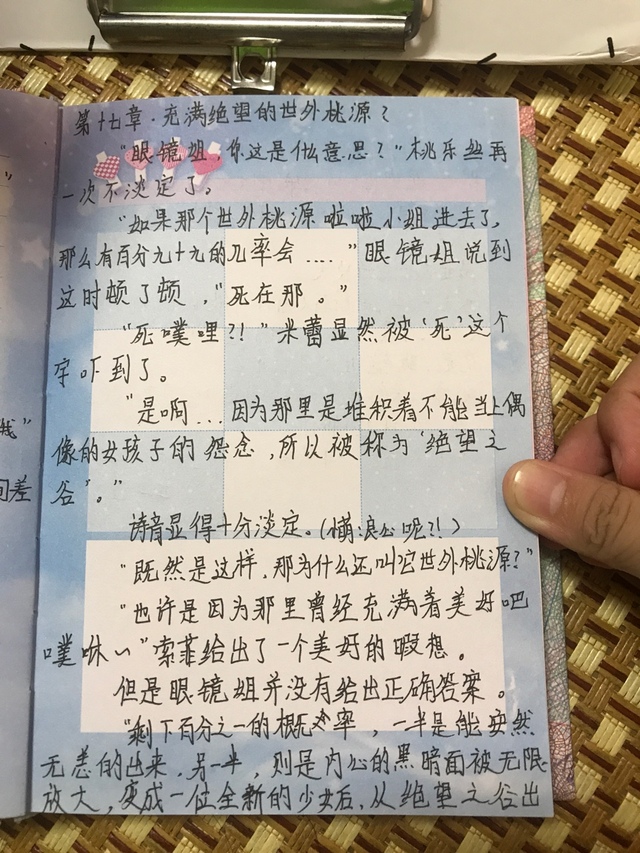 第十七章·充满绝望的世外桃源？
"眼镜姐，你这是什么意思？"桃乐丝再
一次不淡定了。
"如果那个世外桃源啦啦小姐进去了，
那么有百分九十九的几率会...."眼镜姐说到
这时顿了顿，"死在那。"
"死噗哩?!"米蕾显然被'死'这个
字吓到了。
"是啊...因为那里是堆积着不能当上偶
像的女孩子的怨念，所以被称为'绝望之
谷'。"
诗音显得十分淡定。(浪心呢?!)
"既然是这样，那为什么还叫它世外桃源？"
"也许是因为那里曾经充满着美好吧
噗咻~"索菲给出了一个美好的暇想。
但是眼镜姐并没有给出正确答案。
"剩下百分之一的概率，一半是能安然
无恙的出来，另一半，则是内心的黑暗面被无限
放大，变成一位全新的少女后，从绝望之谷出
戏"
间差